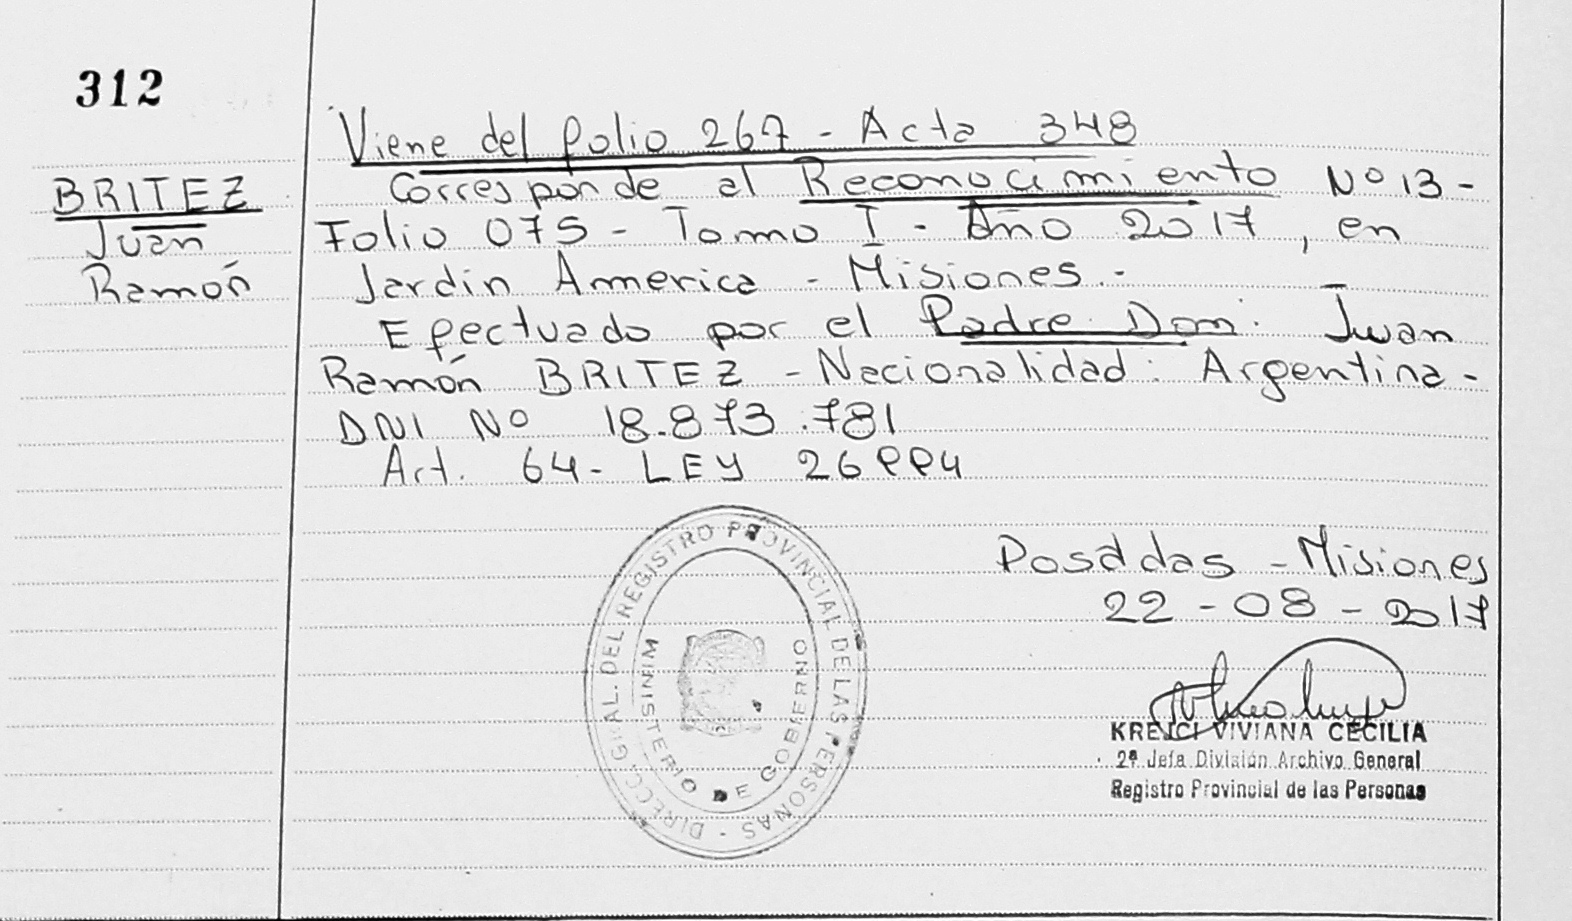 312
BRITEZ
Juan
Ramón
Viene del folio 267 - Acta 348
Corresponde al Reconocimiento Nº 13 -
Folio 075 - Tomo I - Año 2017, en
Jardin America - Misiones.-
Efectuado por el Padre Don: Juan
Ramón BRITEZ - Nacionalidad: Argentina -
DNI Nº 18.873.781
Art. 64 - LEY 26994
Posadas - Misiones
22 - 08 - 2017
KREJCI VIVIANA CECILIA
2ª Jefa División Archivo General
Registro Provincial de las Personas
DIRECC. GRAL. DEL REGISTRO PROVINCIAL DE LAS PERSONAS -
MINISTERIO DE GOBIERNO